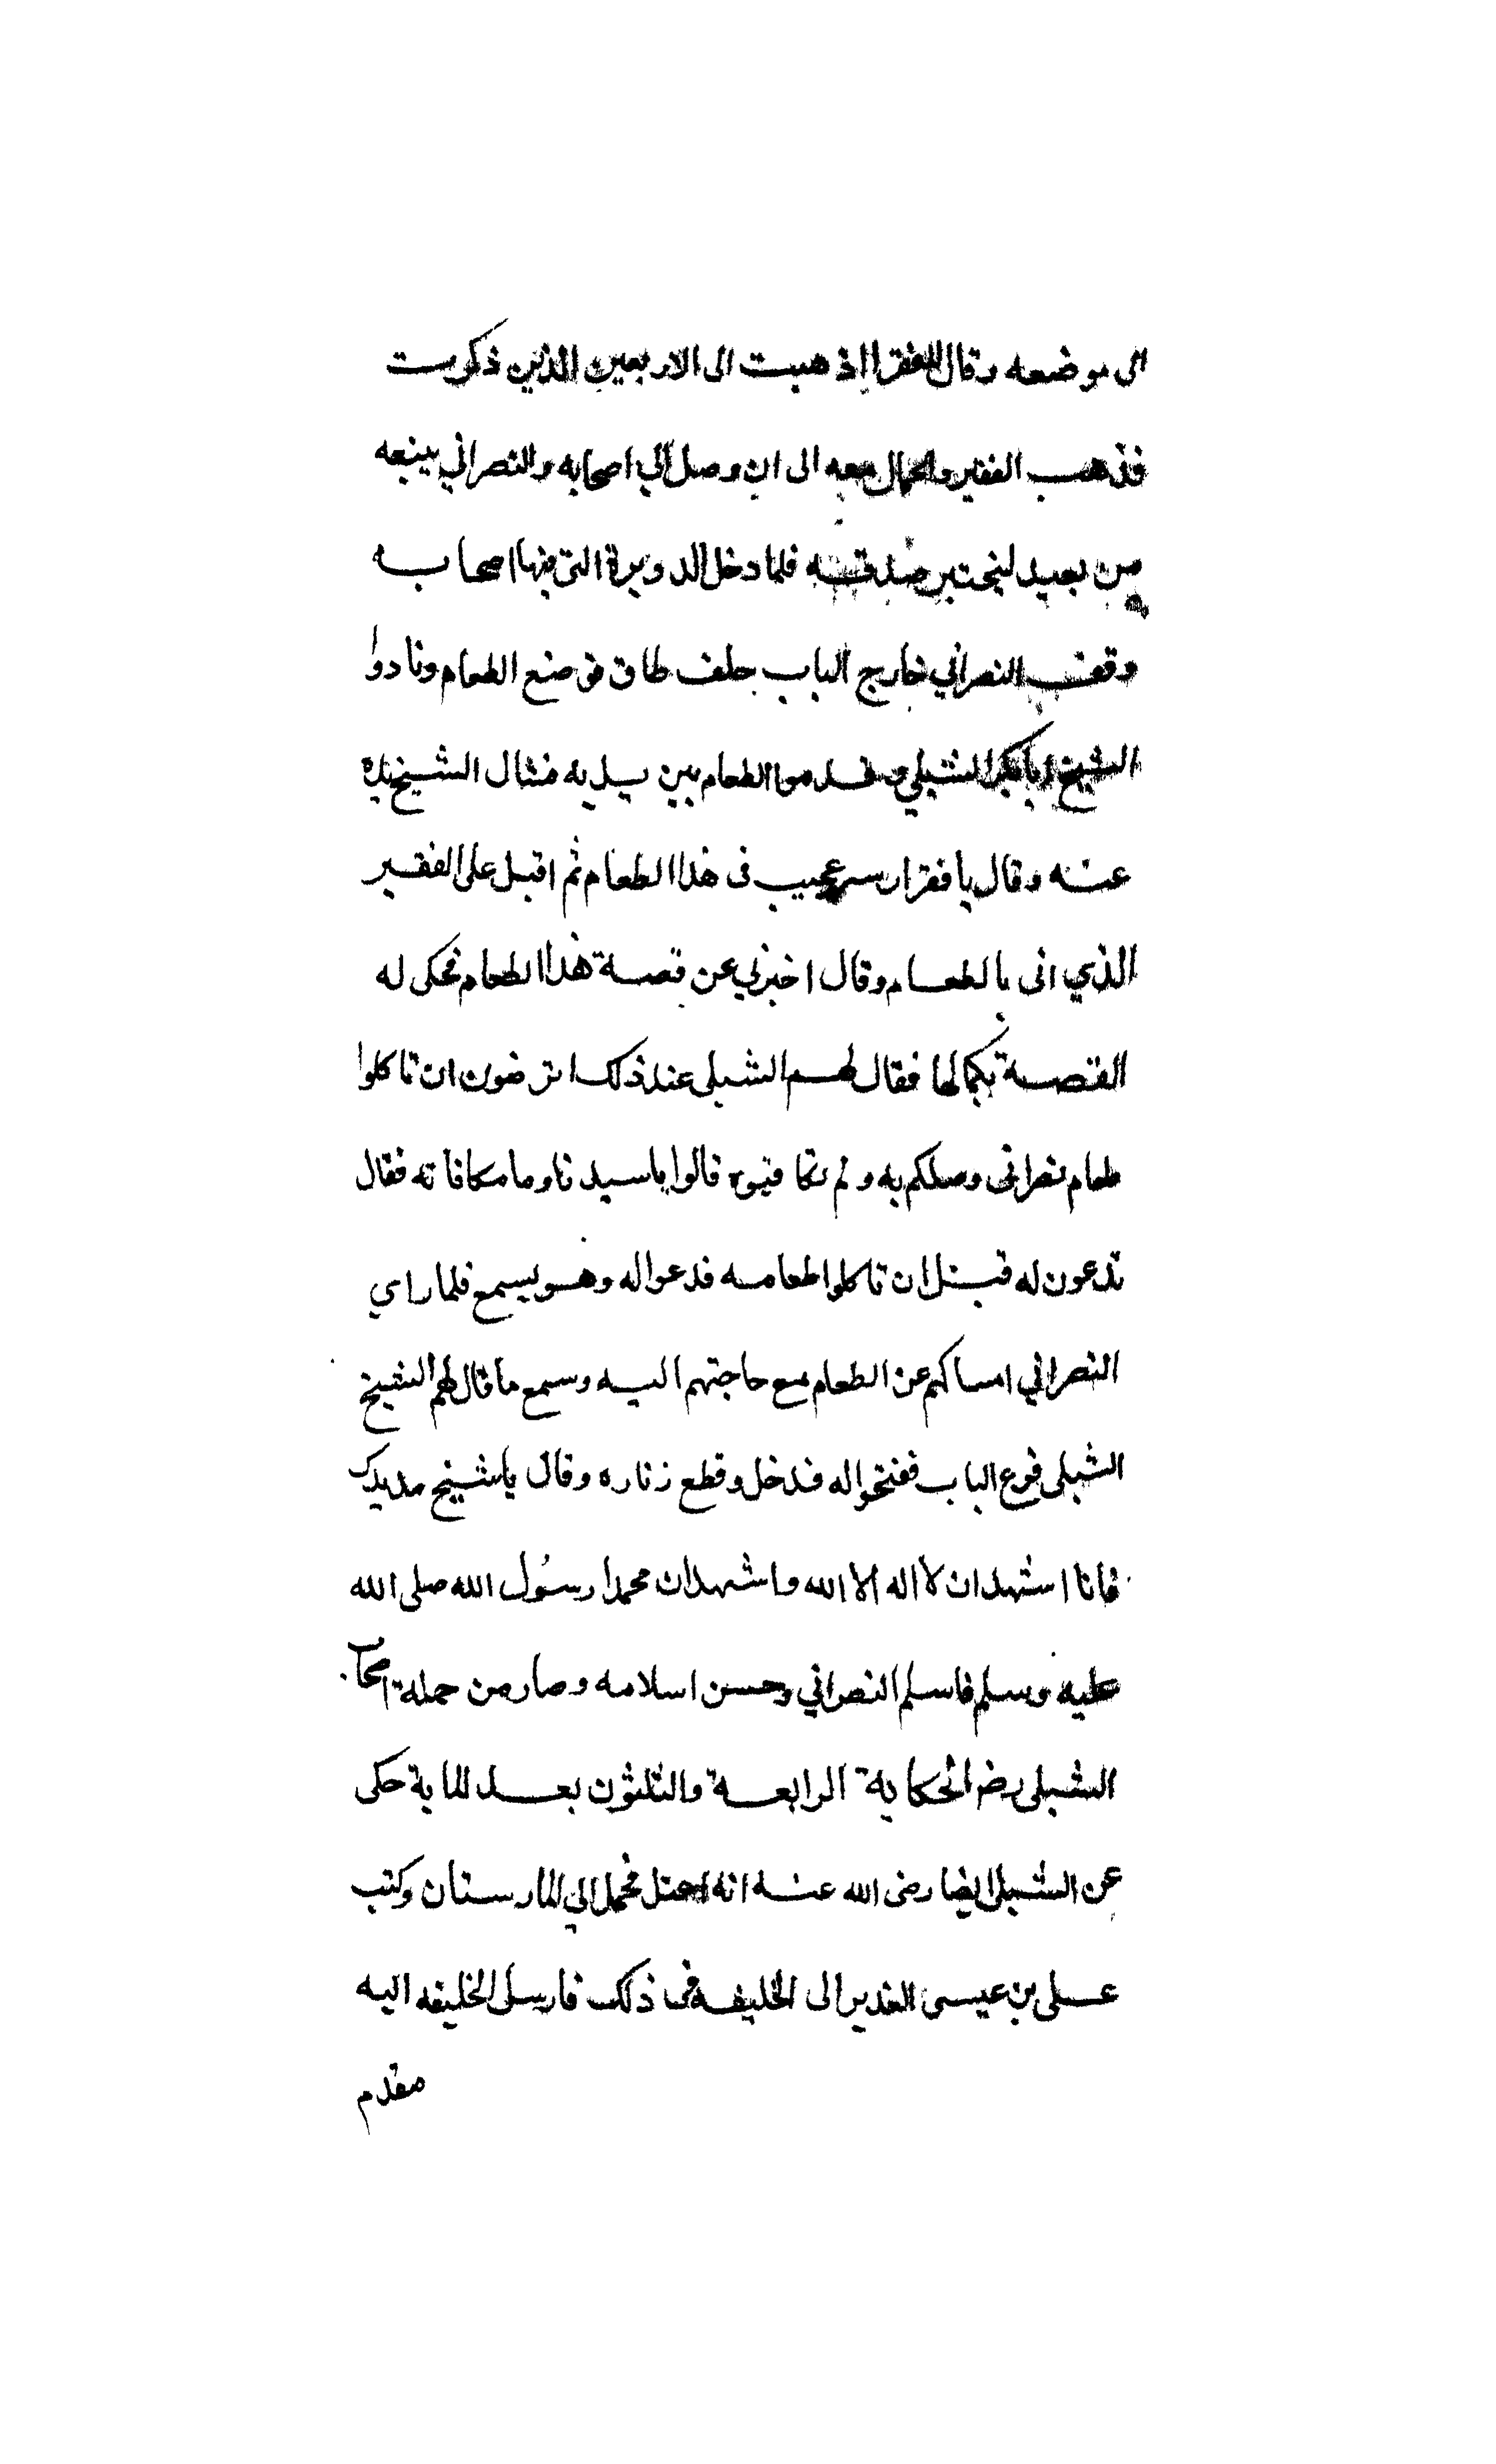 الى موضعه وقال للفقرا اذهبت الى الاربعين الذين ذكرت
فذهب الفقير والحمال معه الى ان وصل الي اصحابه والنصراني يتبعه
من بعيد ليختبر صدقه فلما دخل الدويرة التى فيها اصحابه
وقف النصراني خارج الباب خلف طاق فوضع الطعام ونادوا
الشيخ ابا بكر الشبلي وقدموا الطعام بين يديه فشال الشيخ يده
عنه وقال يا فقرا سر عجيب فى هذا الطعام ثم اقبل على الفقير
الذي اتى بالطعام وقال اخبرني عن قصة هذا الطعام فحكى له
القصة بكمالها فقال لهم الشبلى عند ذلك اترضون ان تاكلوا
طعام نصرانى وصلكم به ولم تكافيوه قالوا يا سيدنا وما مكافاته فقال
تدعون له قبل ان تاكلوا طعامه فدعوا له وهو يسمع فلما راي
النصراني امساكهم عن الطعام مع حاجتهم اليه وسمع ما قال لهم الشيخ
الشبلى قرع الباب ففتحوا له فدخل وقطع زناره وقال يا شيخ مد يدك
فانا اشهد ان لا اله الا الله واشهد ان محمدا رسول الله صلى الله
عليه وسلم فاسلم النصراني وحسن اسلامه وصار من جملة اصحاب
الشبلى رضه الحكاية الرابعة والثلثون بعد الماية حكى
عن الشبلى ايضا رضى الله عنه انه اعتل فحمل الي المارستان وكتب
على بن عيسى الى الخليفة فى ذلك فارسل الخليفه اليه
مقدم